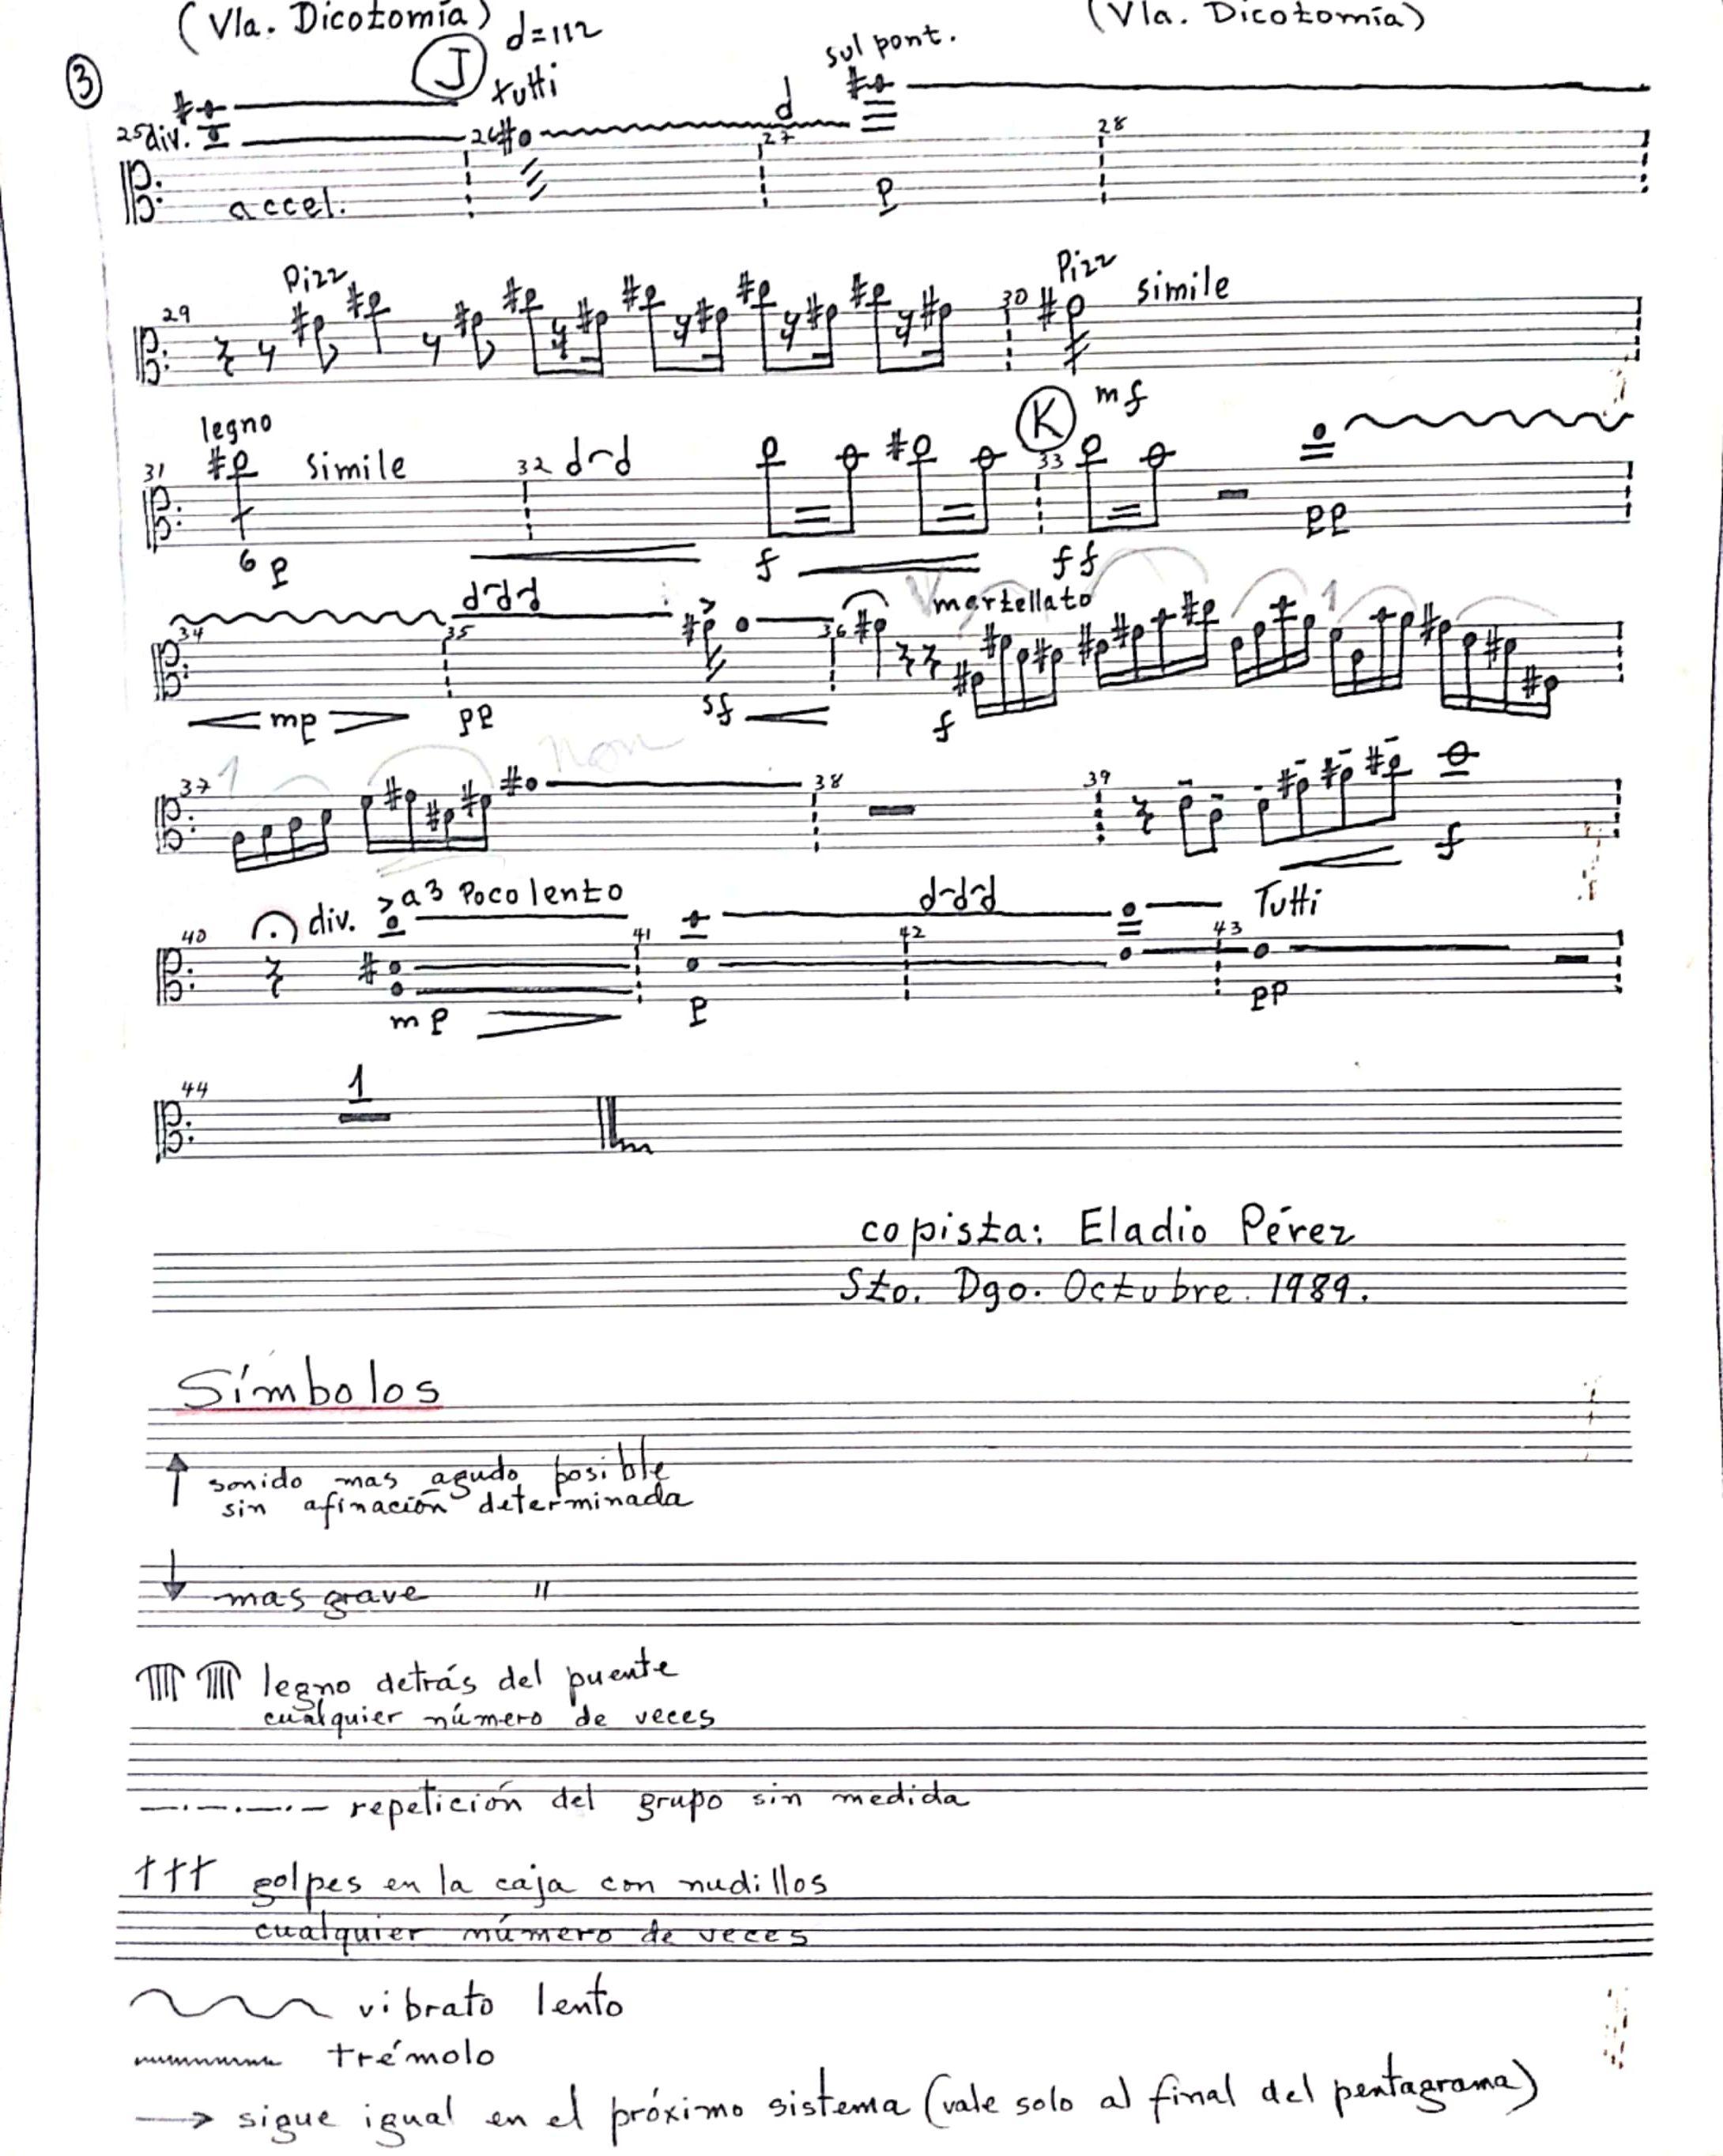 (Vla. Dicotomía) (Vla. Dicotomía)
3
J d=112 sul pont.
tutti
25 div. 26 27 28
accel. p
Pizz Pizz simile
29 30
mf
legno K
31 simile 32 33
6 p f ff pp
martellato
34 35 36
mp pp sf f
non
37 1 38 39
f
40 div. a3 Poco lento 41 42 43 Tutti
mp p pp
44 1
copista: Eladio Pérez
Sto. Dgo. Octubre. 1989.
Símbolos
sonido mas agudo posible
sin afinación determinada
mas grave "
legno detrás del puente
cualquier número de veces
repetición del grupo sin medida
golpes en la caja con nudillos
cualquier número de veces
vibrato lento
trémolo
sigue igual en el próximo sistema (vale solo al final del pentagrama)